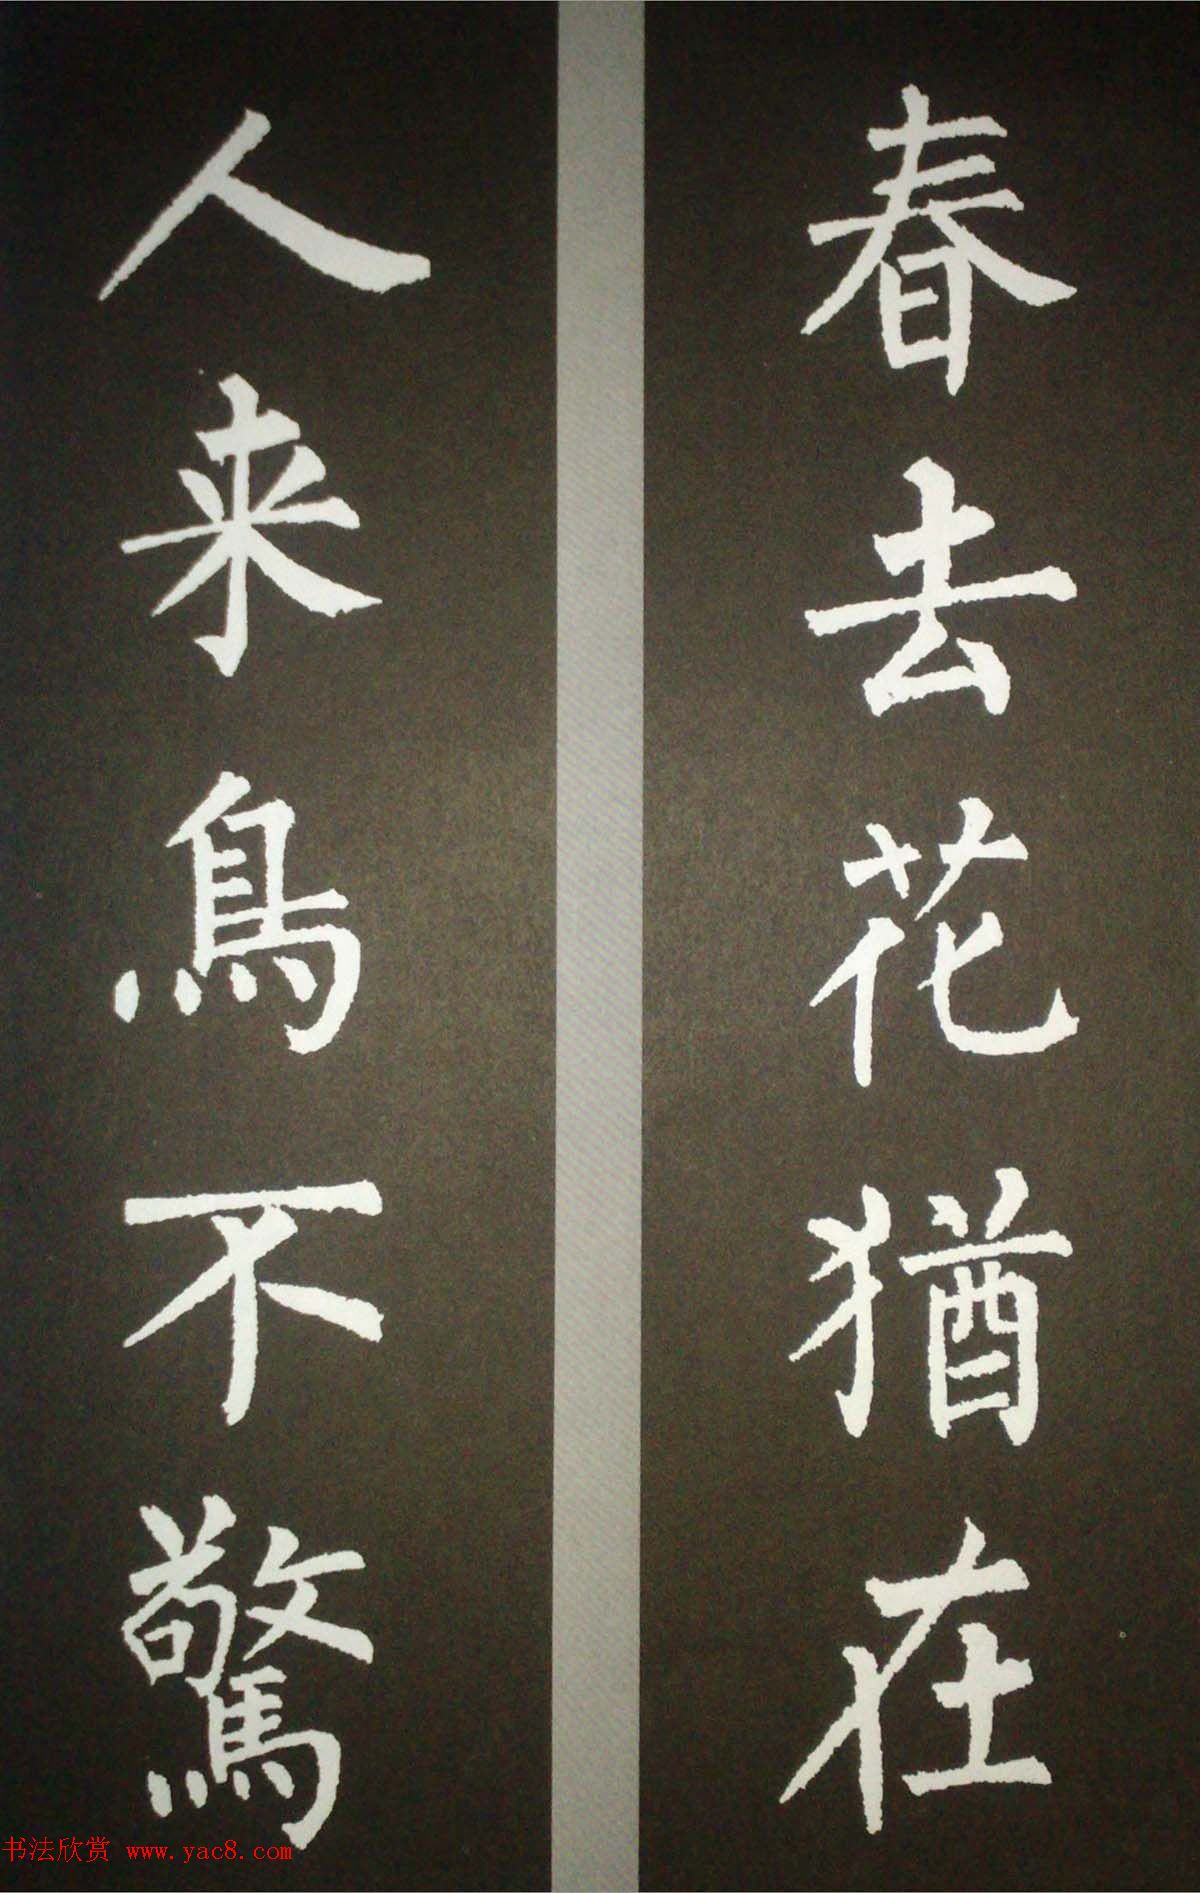 春去花猶在
人来鳥不驚
书法欣赏 www.yac8.com